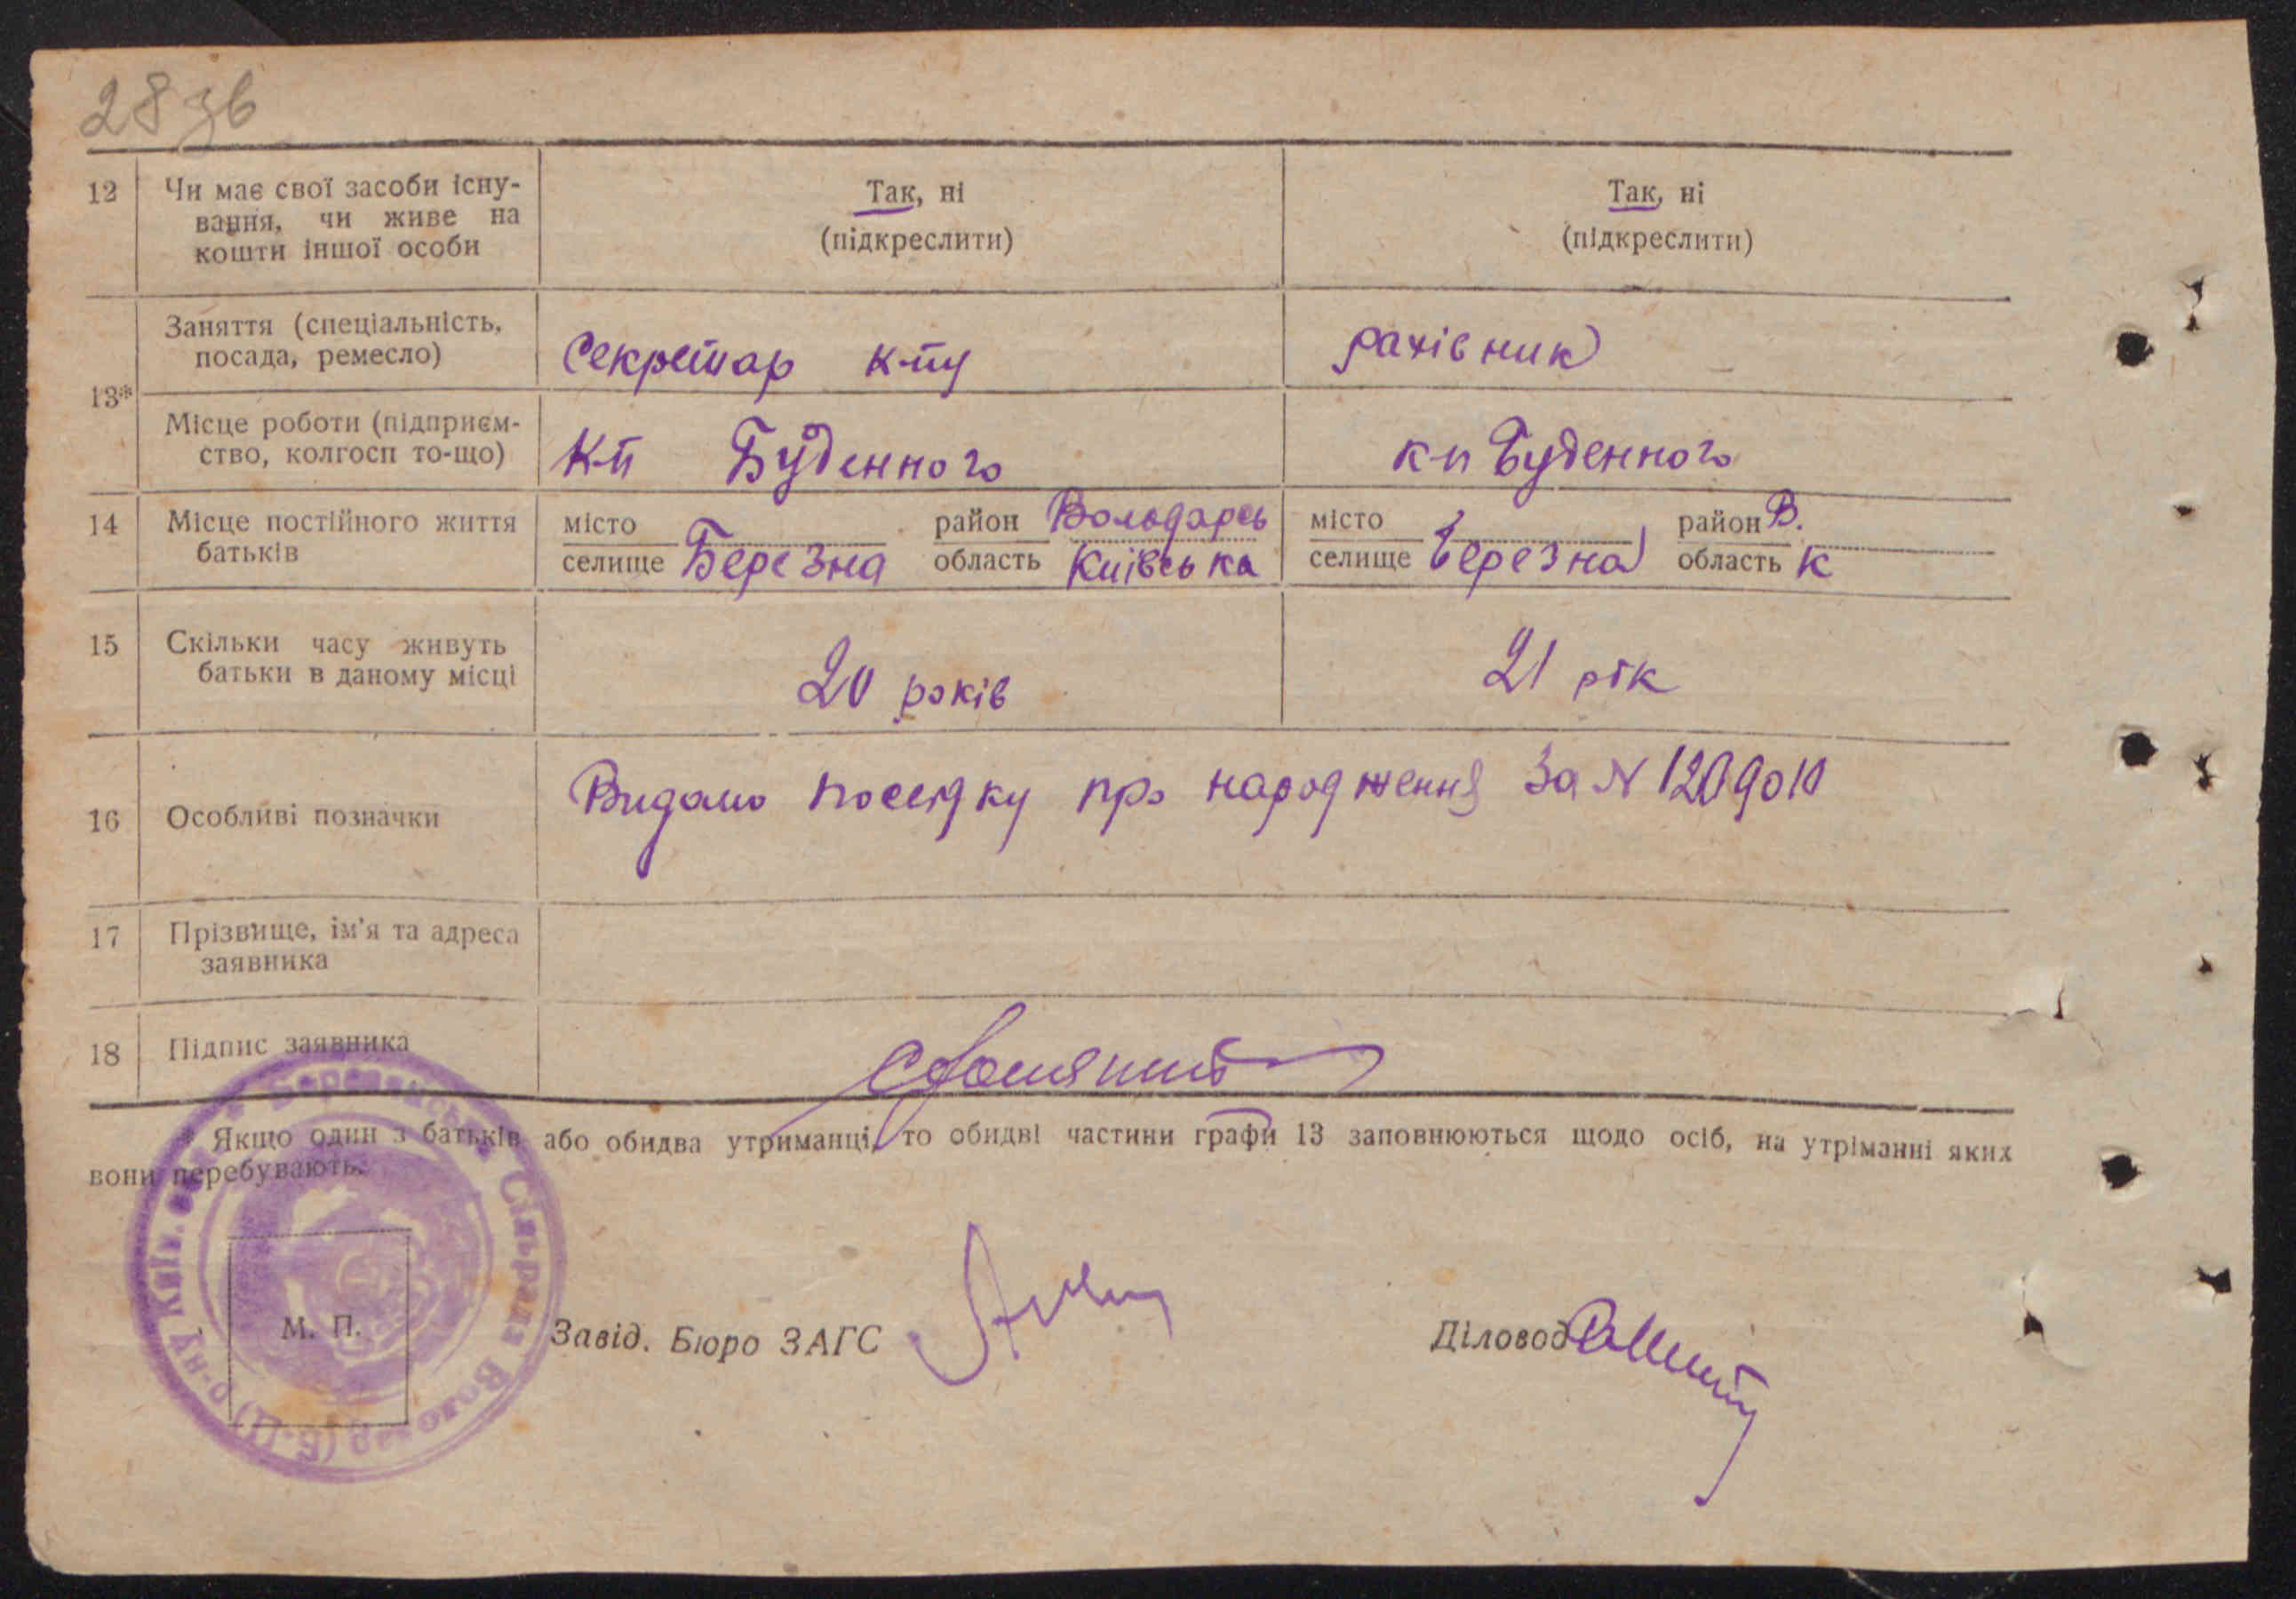 28 зв
12 Чи має свої засоби існу- Так, ні Так, ні
вання, чи живе на (підкреслити) (підкреслити)
кошти іншої особи
Заняття (спеціальність, Секретар к-пу рахівник
посада, ремесло)
13*
Місце роботи (підприєм- Кп Буденного кп Буденного
ство, колгосп то-що)
14 Місце постійного життя місто район Володарсь місто район В.
батьків селище Березна область Київська селище Березна область К
15 Скільки часу живуть
батьки в даному місці 20 років 21 рік
16 Особливі позначки Видано посвідку про народження За N
17 Прізвище, ім'я та адреса
заявника
18 Підпис заявника
* Якщо один з батьків або обидва утриманці, то обидві частини графи 13 заповнюються щодо осіб, на утріманні яких
вони перебувають.
Сільрада
М. П.
Завід. Бюро ЗАГС Діловод